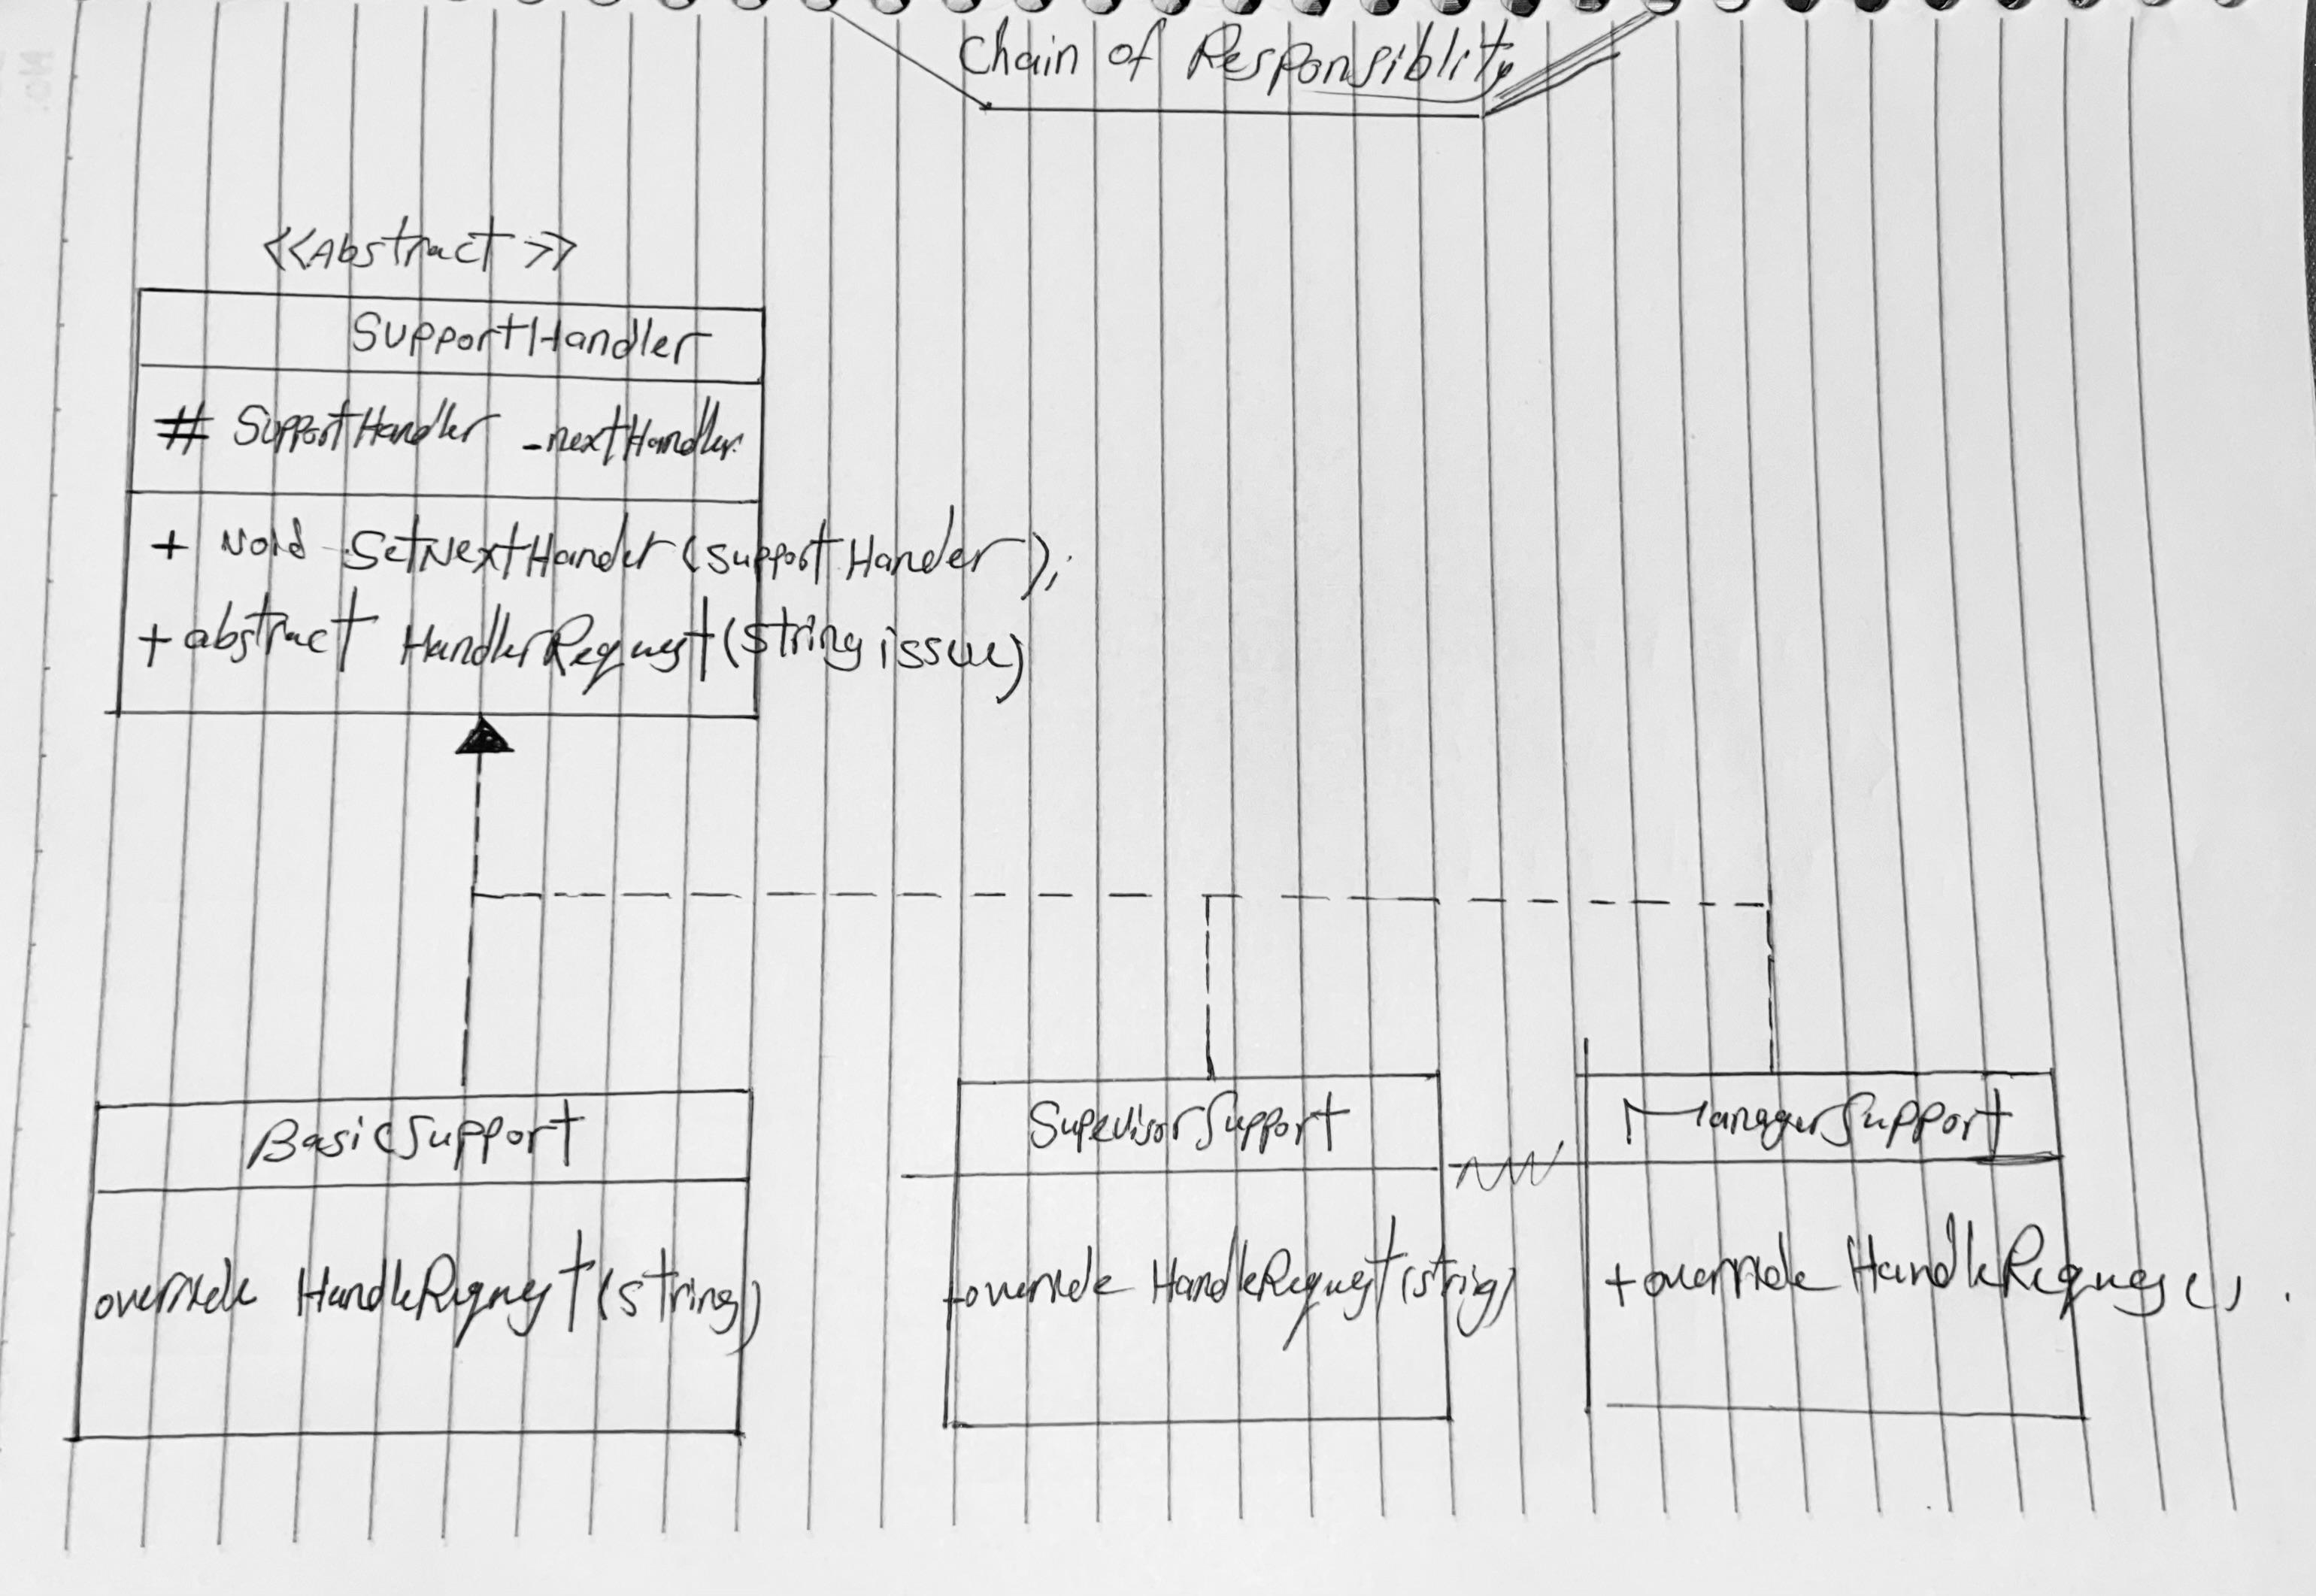 Chain of Responsiblity
<<Abstract>>
SupportHandler
# SupportHandler _nextHandler
+ void SetNextHander(support Hander);
+ abstract HandlerRequest(string issue)
BasicSupport
override HandleRequest(string)
SupevisorSupport
+override HandleRequest(strig)
ManagerSupport
+override HandleReques().